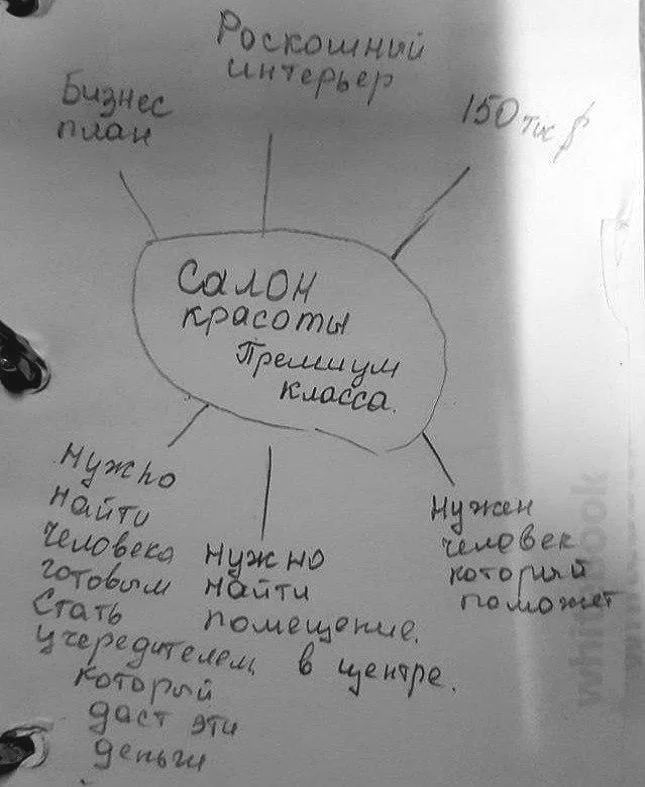 Роскошний
интерьер
Бизнес
план
150 тис р
Салон
красоты
Премиум
класса.
Нужно
найти
человека
готовым
Стать
учередителем,
который
даст эти
деньги
Нужно
найти
помещение.
в центре.
Нужен
человек
который
поможет
whitebook